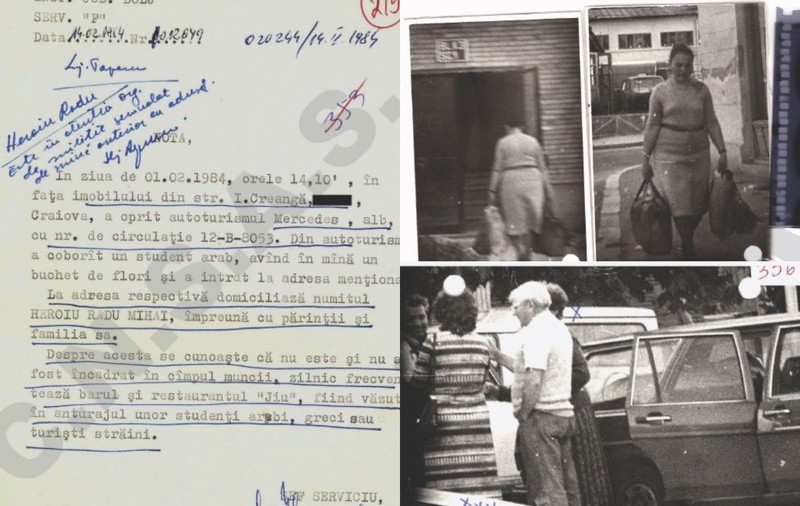 SERV. "F"
219
Data 14.02.1984 Nr. 0012649
020244/14.II.1984
Heroiu Radu
Este în atenția org.
de miliție semnalat
de mine anterior cu adresă.
353
NOTA,
În ziua de 01.02.1984, orele 14,10', în
fața imobilului din str. I.Creangă,
Craiova, a oprit autoturismul Mercedes, alb,
cu nr. de circulație 12-B-8053. Din autoturism
a coborît un student arab, avînd în mînă un
buchet de flori și a intrat la adresa mențione
La adresa respectivă domiciliază numitul
HEROIU RADU MIHAI, împreună cu părinții și
familia sa.
Despre acesta se cunoaște că nu este și nu
fost încadrat în cîmpul muncii, zilnic frecven
tează barul și restaurantul "Jiu", fiind văzut
în anturajul unor studenți arabi, greci sau
turiști străini.
SERVICIU,
C.N.S.A.S.
356
x
xxx